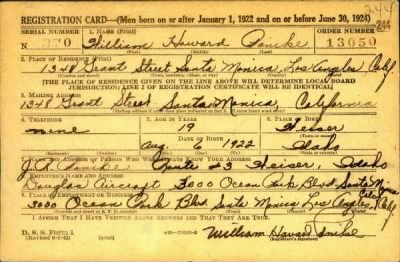 244
REGISTRATION CARD—(Men born on or after January 1, 1922 and on or before June 30, 1924)
244
SERIAL NUMBER 1. NAME (Print) ORDER NUMBER
N 370 William Howard Amike 13050
(First) (Middle) (Last)
2. PLACE OF RESIDENCE (Print)
1348 Grant Street Santa Monica, Los Angeles Calif.
(Number and street) (Town, township, village, or city) (County) (State)
[THE PLACE OF RESIDENCE GIVEN ON THE LINE ABOVE WILL DETERMINE LOCAL BOARD
JURISDICTION; LINE 2 OF REGISTRATION CERTIFICATE WILL BE IDENTICAL]
3. MAILING ADDRESS
1348 Grant Street Santa Monica, California
4. TELEPHONE 5. AGE IN YEARS 6. PLACE OF BIRTH
none 19 Weiser
DATE OF BIRTH
Aug. 6 1922 Idaho
7. NAME AND ADDRESS OF PERSON WHO WILL ALWAYS KNOW YOUR ADDRESS
Route #3 Weiser, Idaho
8. EMPLOYER'S NAME AND ADDRESS
Douglas Aircraft 3000 Ocean Park Blvd. Santa Monica
Calif.
9. PLACE OF EMPLOYMENT OR BUSINESS
3000 Ocean Park Blvd. Santa Monica Los Angeles, Calif
I AFFIRM THAT I HAVE VERIFIED ABOVE ANSWERS AND THAT THEY ARE TRUE.
D. S. S. Form 1
William Howard Amike
(Registrant's signature)